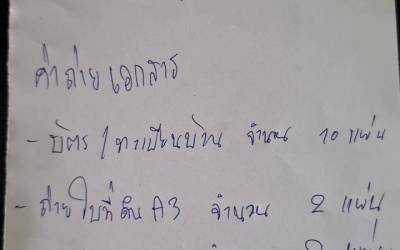 ค่าถ่ายเอกสาร
- บัตร / ทะเบียนบ้าน จำนวน 10 แผ่น
- ถ่ายใบที่ดิน A3 จำนวน 2 แผ่น